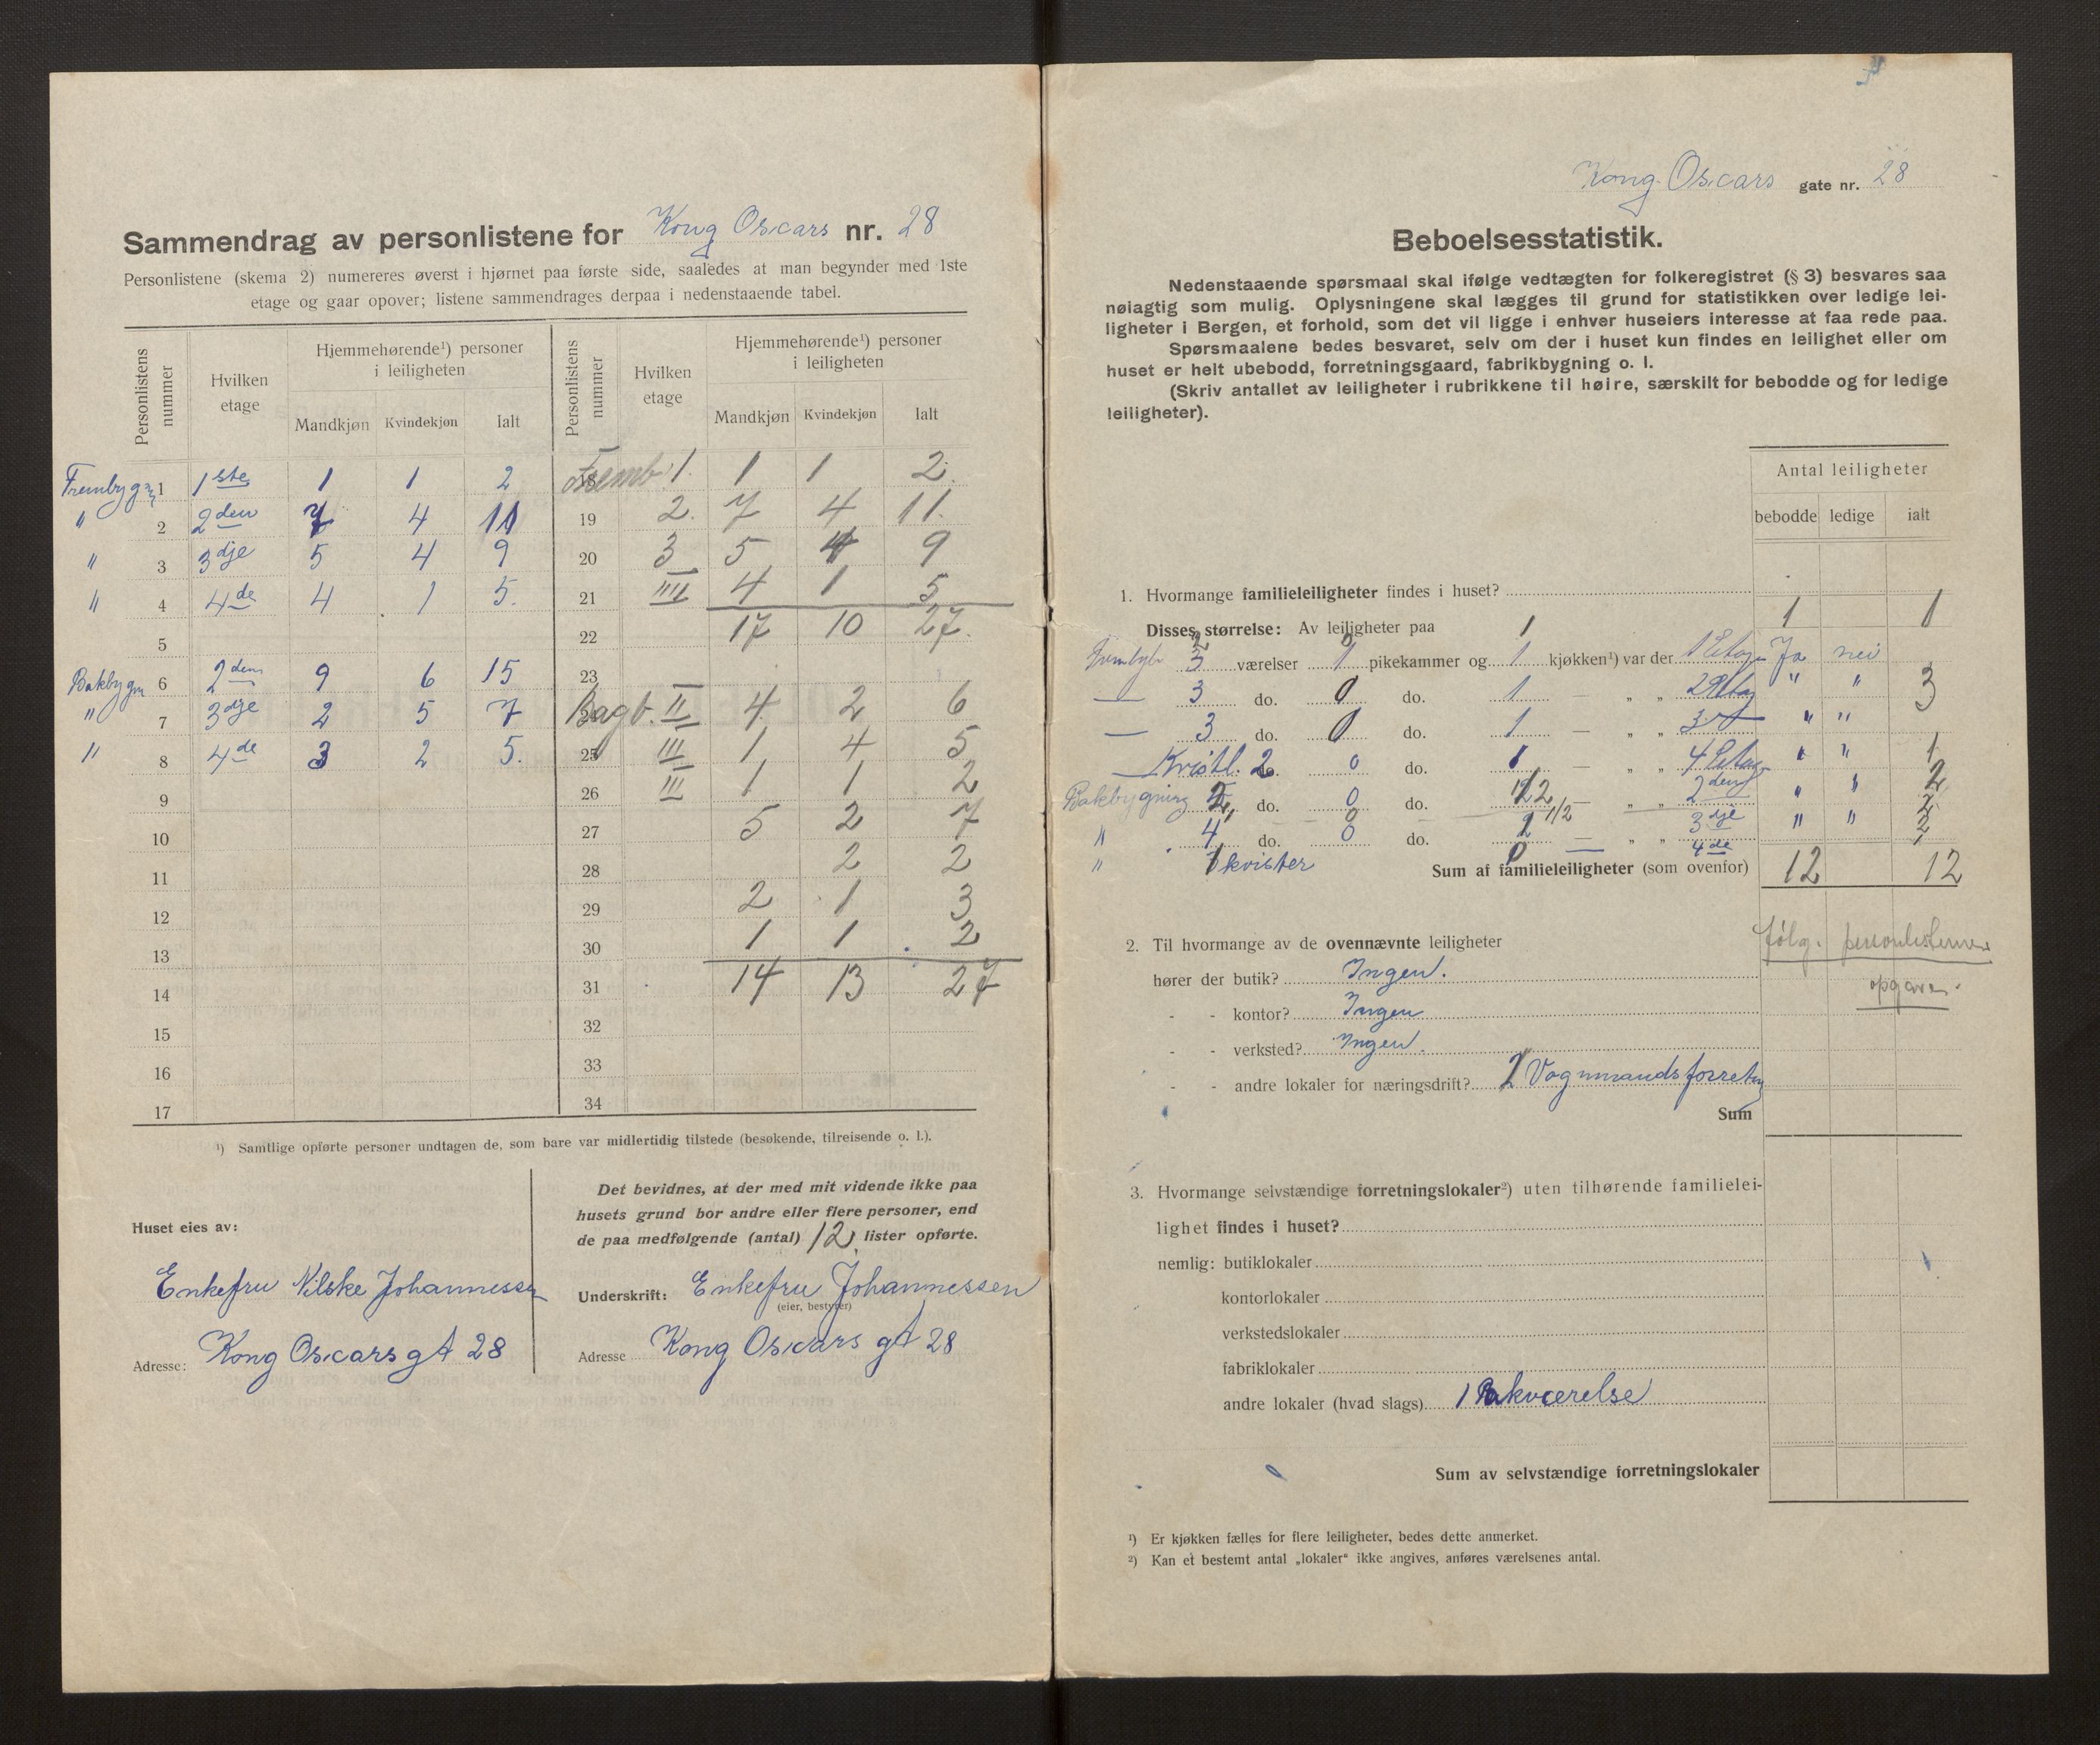 Sammendrag av personlistene for Kong Oscars nr. 28
Personlistene (skema 2) numereres øverst i hjørnet paa første side, saaledes at man begynder med 1ste
etage og gaar opover; listene sammendrages derpaa i nedenstaaende tabel.
Personlistens nummer Hvilken etage Hjemmehørende¹) personer i leiligheten Mandkjøn Kvindekjøn Ialt
Frembygn 1 1ste 1 1 2
" 2 2den 7 4 11
" 3 3dje 5 4 9
" 4 4de 4 1 5.
5
Bakbygn 6 2den 9 6 15
" 7 3dje 2 5 7
" 8 4de 3 2 5.
9
10
11
12
13
14
15
16
17
Personlistens nummer Hvilken etage Hjemmehørende¹) personer i leiligheten Mandkjøn Kvindekjøn Ialt
18 Fremb. 1. 1 1 2.
19 2. 7 4 11.
20 3 5 4 9
21 IIII 4 1 5
22 17 10 27.
23
Bagb. II 4 2 6
25 III 1 4 5
26 III 1 1 2
27 5 2 7
28 2 2
29 2 1 3
30 1 1 2
31 14 13 27
32
33
34
¹) Samtlige opførte personer undtagen de, som bare var midlertidig tilstede (besøkende, tilreisende o. l.).
Huset eies av:
Enkefru Nilske Johannessen
Adresse: Kong Oscarsgt 28
Det bevidnes, at der med mit vidende ikke paa
husets grund bor andre eller flere personer, end
de paa medfølgende (antal) 12 lister opførte.
Underskrift: Enkefru Johannessen
(eier, bestyrer)
Adresse Kong Oscars gt 28
Kong Oscars gate nr. 28
Beboelsesstatistik.
Nedenstaaende spørsmaal skal ifølge vedtægten for folkeregistret (§ 3) besvares saa
nøiagtig som mulig. Oplysningene skal lægges til grund for statistikken over ledige lei-
ligheter i Bergen, et forhold, som det vil ligge i enhver huseiers interesse at faa rede paa.
Spørsmaalene bedes besvaret, selv om der i huset kun findes en leilighet eller om
huset er helt ubebodd, forretningsgaard, fabrikbygning o. l.
(Skriv antallet av leiligheter i rubrikkene til høire, særskilt for bebodde og for ledige
leiligheter).
Antal leiligheter
bebodde ledige ialt
1. Hvormange familieleiligheter findes i huset?
Disses størrelse: Av leiligheter paa 1 1 1
Frembyb 3 værelser 1 pikekammer og 1 kjøkken¹) var der 1 Etage Ja nei
— 3 do. 0 do. 1 — " " 2 Etag " " 3
— 3 do. 0 do. 1 — " " 3 " "
Kvistl. 2 do. 0 do. 1 — " " 4 Etage " " 1
Bakbygning do. 0 do. — " " 2den " " 2
" 4 do. 0 do. 2 — " " 3dje " " 2
" 1 kvister 4de
Sum af familieleiligheter (som ovenfor) 12 12
2. Til hvormange av de ovennævnte leiligheter
følg. personlisternes
opgave.
hører der butik? Ingen.
- - kontor? Ingen
- - verksted? Ingen.
- - andre lokaler for næringsdrift? 1 Vogmandsforretng
Sum
3. Hvormange selvstændige forretningslokaler²) uten tilhørende familielei-
lighet findes i huset?
nemlig: butiklokaler
kontorlokaler
verkstedslokaler
fabriklokaler
andre lokaler (hvad slags) 1 Bakværelse
Sum av selvstændige forretningslokaler
¹) Er kjøkken fælles for flere leiligheter, bedes dette anmerket.
²) Kan et bestemt antal „lokaler" ikke angives, anføres værelsenes antal.